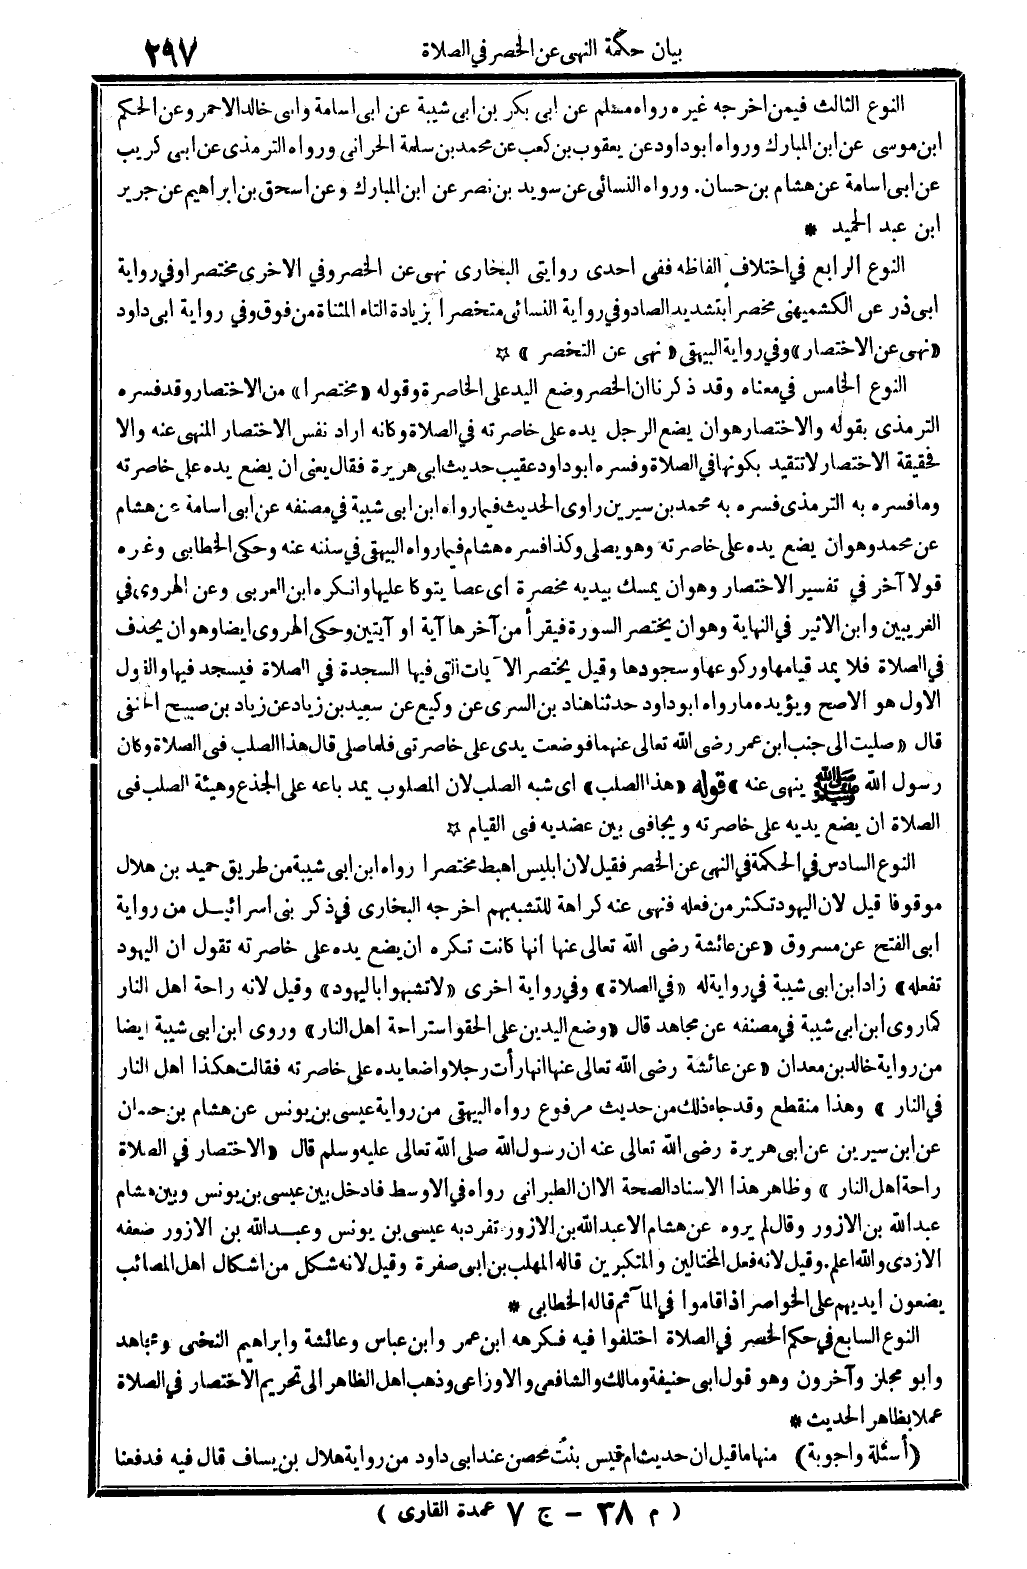 بيان حكمة النهى عن الخصر فى الصلاة ٢٩٧
النوع الثالث فيمن اخرجه غيره رواه مسلم عن ابى بكر بن ابى شيبة عن ابى اسامة وابى خالد الاحمر وعن الحكم
ابن موسى عن ابن المبارك ورواه ابو داود عن يعقوب بن كعب عن محمد بن سلمة الحرانى ورواه الترمذى عن ابى كريب
عن ابى اسامة عن هشام بن حسان. ورواه النسائى عن سويد بن نصر عن ابن المبارك وعن اسحق بن ابراهيم عن جرير
ابن عبد الحميد *
النوع الرابع فى اختلاف الفاظه ففى احدى روايتى البخارى نهى عن الخصر وفى الاخرى مختصرا وفى رواية
ابى ذر عن الكشميهنى مخصرا بتشديد الصاد وفى رواية النسائى متخصرا بزيادة التاء المثناة من فوق وفى رواية ابى داود
«نهى عن الاختصار» وفى رواية البيهقى «نهى عن التخصر» ☆
النوع الخامس فى معناه وقد ذكرنا ان الخصر وضع اليد على الخاصرة وقوله «مختصرا» من الاختصار وقد فسره
الترمذى بقوله والاختصار هو ان يضع الرجل يده على خاصرته فى الصلاة وكانه اراد نفس الاختصار المنهى عنه والا
فحقيقة الاختصار لا تتقيد بكونها فى الصلاة وفسره ابو داود عقيب حديث ابى هريرة فقال يعنى ان يضع يده على خاصرته
وما فسره به الترمذى فسره به محمد بن سيرين راوى الحديث فيما رواه ابن ابى شيبة فى مصنفه عن ابى اسامة عن هشام
عن محمد وهو ان يضع يده على خاصرته وهو يصلى وكذا فسره هشام فيما رواه البيهقى فى سننه عنه وحكى الخطابى وغره
قولا آخر فى تفسير الاختصار وهو ان يمسك بيديه مخصرة اى عصا يتوكا عليها وانكره ابن العربى وعن الهروى فى
الغريبين وابن الاثير فى النهاية وهو ان يختصر السورة فيقرأ من آخرها آية او آيتين وحكى الهروى ايضا وهو ان يحذف
فى الصلاة فلا يمد قيامها وركوعها وسجودها وقيل يختصر الآيات التى فيها السجدة فى الصلاة فيسجد فيها والقول
الاول هو الاصح ويؤيده ما رواه ابو داود حدثنا هناد بن السرى عن وكيع عن سعيد بن زياد عن زياد بن صبيح الحنفى
قال «صليت الى جنب ابن عمر رضى الله تعالى عنهما فوضعت يدى على خاصرتى فلما صلى قال هذا الصلب فى الصلاة وكان
رسول الله ﷺ ينهى عنه» قوله «هذا الصلب» اى شبه الصلب لان المصلوب يمد باعه على الجذع وهيئة الصلب فى
الصلاة ان يضع يديه على خاصرته ويجافى بين عضديه فى القيام ☆
النوع السادس فى الحكمة فى النهى عن الخصر فقيل لان ابليس اهبط مختصرا رواه ابن ابى شيبة من طريق حميد بن هلال
موقوفا قيل لان اليهود تكثر من فعله فنهى عنه كراهة للتشبه بهم اخرجه البخارى فى ذكر بنى اسرائيل من رواية
ابى الفتح عن مسروق «عن عائشة رضى الله تعالى عنها انها كانت تكره ان يضع يده على خاصرته تقول ان اليهود
تفعله» زاد ابن ابى شيبة فى رواية له «فى الصلاة» وفى رواية اخرى «لا تشبهوا باليهود» وقيل لانه راحة اهل النار
كما روى ابن ابى شيبة فى مصنفه عن مجاهد قال «وضع اليدين على الحقو استراحة اهل النار» وروى ابن ابى شيبة ايضا
من رواية خالد بن معدان «عن عائشة رضى الله تعالى عنها انها رأت رجلا واضعا يده على خاصرته فقالت هكذا اهل النار
فى النار» وهذا منقطع وقد جاء ذلك من حديث مرفوع رواه البيهقى من رواية عيسى بن يونس عن هشام بن حسان
عن ابن سيرين عن ابى هريرة رضى الله تعالى عنه ان رسول الله صلى الله تعالى عليه وسلم قال «الاختصار فى الصلاة
راحة اهل النار» وظاهر هذا الاسناد الصحة الا ان الطبرانى رواه فى الاوسط فادخل بين عيسى بن يونس وبين هشام
عبد الله بن الازور وقال لم يروه عن هشام الا عبد الله بن الازور تفرد به عيسى بن يونس وعبد الله بن الازور ضعفه
الازدى والله اعلم. وقيل لانه فعل المختالين والمتكبرين قاله المهلب بن ابى صفرة وقيل لانه شكل من اشكال اهل المصائب
يضعون ايديهم على الخواصر اذا قاموا فى المآتم قاله الخطابى *
النوع السابع فى حكم الخصر فى الصلاة اختلفوا فيه فكرهه ابن عمر وابن عباس وعائشة وابراهيم النخعى ومجاهد
وابو مجلز وآخرون وهو قول ابى حنيفة ومالك والشافعى والاوزاعى وذهب اهل الظاهر الى تحريم الاختصار فى الصلاة
عملا بظاهر الحديث *
(أسئلة واجوبة) منها ما قيل ان حديث ام قيس بنت محصن عند ابى داود من رواية هلال بن يساف قال فيه فدفعنا
( م ٣٨ – ج ٧ عمدة القارى )